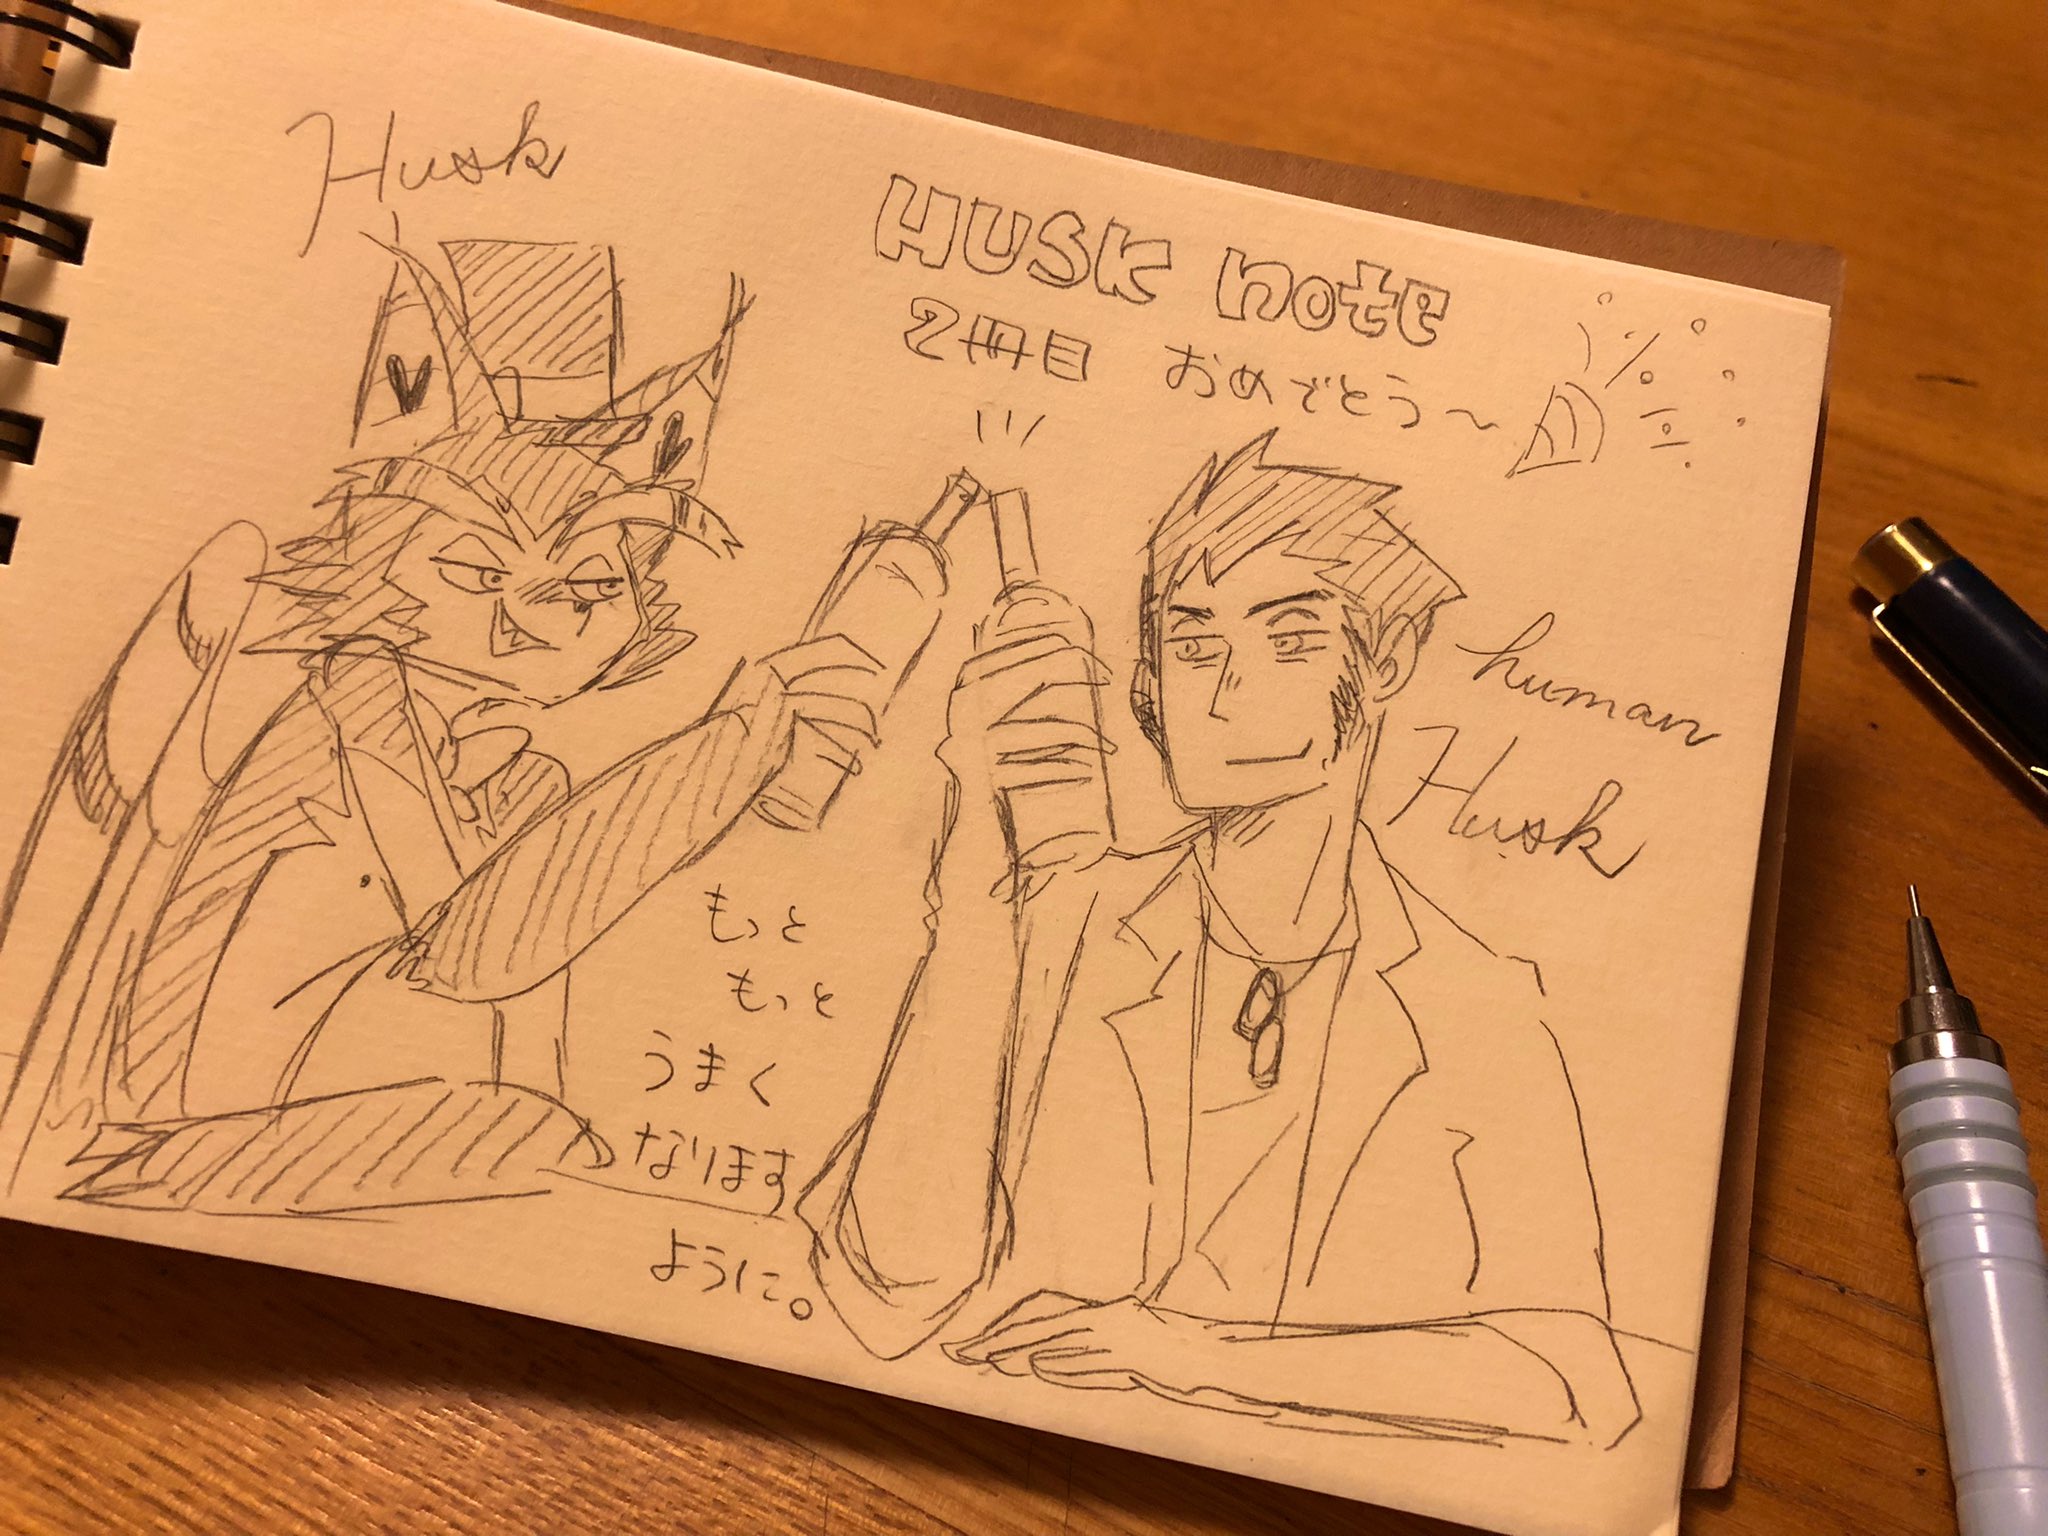 Husk
HUSK note
2冊目 おめでとう～
human
Husk
もっと
もっと
うまく
なります
ように。